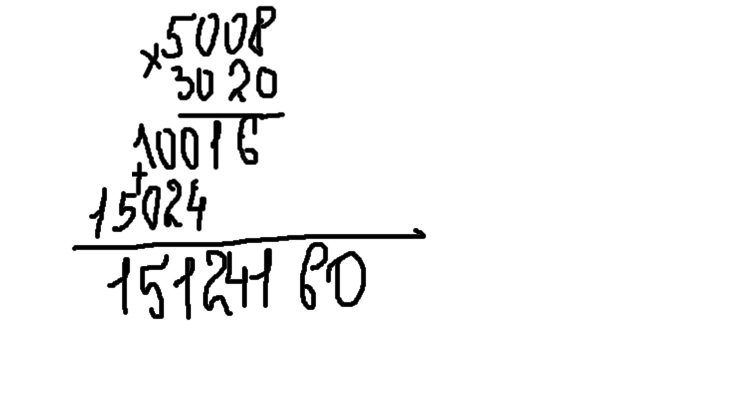 × 5008
3020
10016
+
15024
15124160